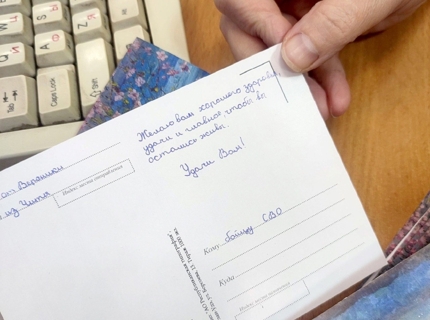 Желаю вам хорошего здоровья,
удачи и главное, чтобы вы
остались живы.
Удачи Вам!
от Вероники
из Читы
Индекс места отправления
Кому бойцу СВО
Куда
Индекс места назначения
Caps Lock